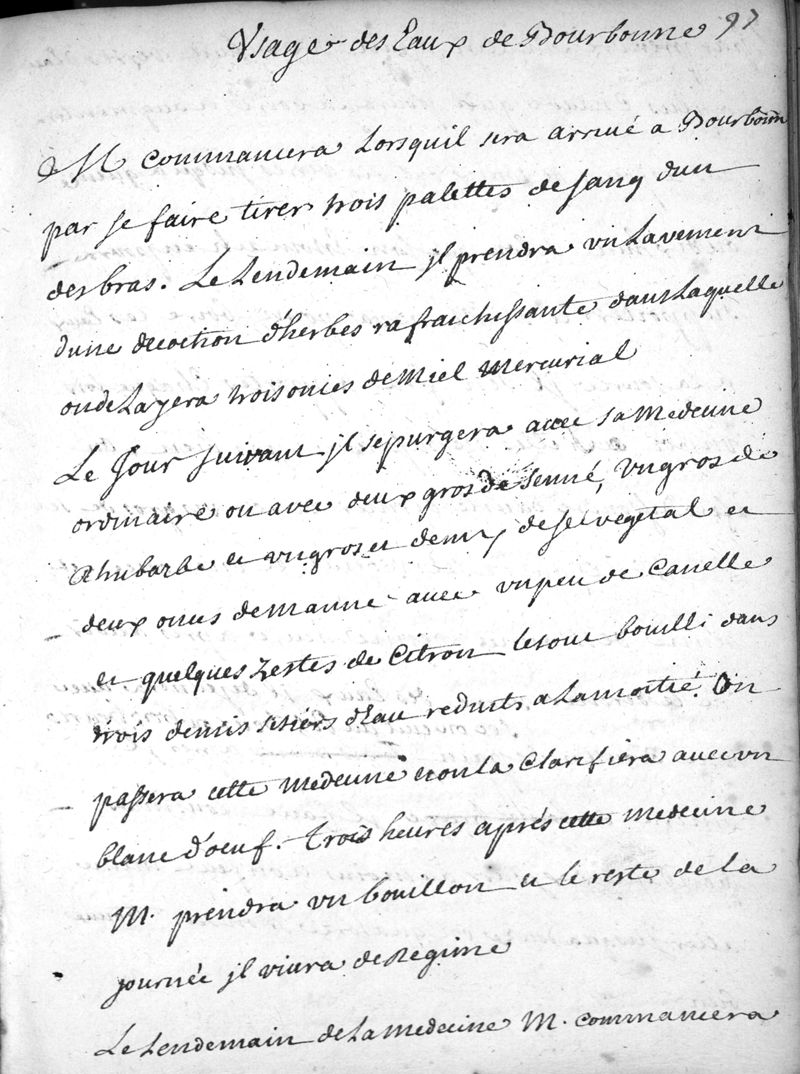 97
Vsage des Eaux de Bourbonne
M commancera Lorsquil sera arriué a Bourbonn
par se faire tirer trois palettes de sang dun
des bras. Le Lendemain jl prendra vn Lavement
dune decoction d'herbes rafraichissante dans Laquelle
on deLayera trois onces de Miel Mercurial
Le Jour suivant jl se purgera avec sa Medecine
ordinaire ou avec deux gros de senné, vn gros de
Rhubarbe et vn gros et demy de sel vegetal et
deux onces de manne avec vn peu de Canelle
et quelques zestes de Citron le tout bouilli dans
trois demis setiers d'eau reduits a La moitié. On
passera cette medecine et on la Clarifiera avec vn
blanc d'oeuf. Trois heures aprés cette medecine
M. prendra vn bouillon et le reste de la
journée jl viura de Regime
Le Lendemain de La medecine M. commancera